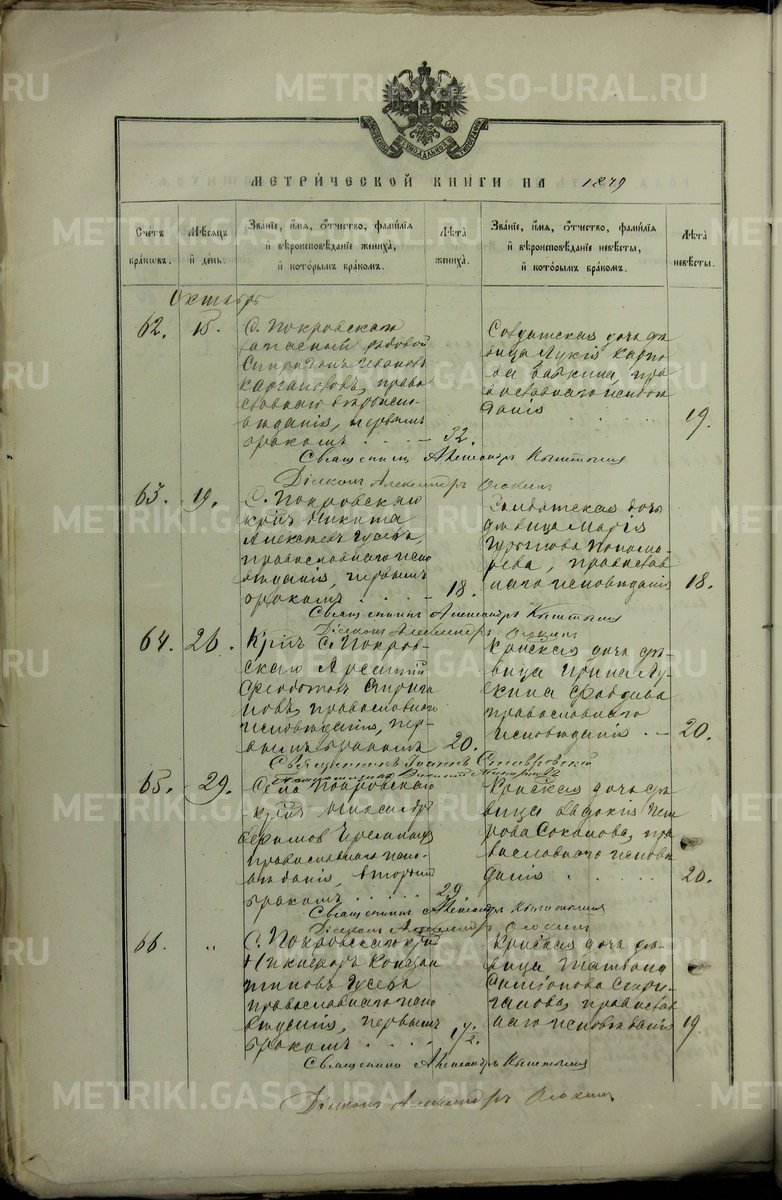 METRIKI.GASO-URAL.RU
МЕТРИ́ЧЕСКОЙ КНИ́ГИ НА 1879
Счетъ бра́ковъ.
Мѣсяцъ и҆ де́нь.
Зва́нїе, и҆́мѧ, ѻ҆́тчество, фами́лїѧ
и҆ вѣроисповѣ́данїе жениха̀,
и҆ кото́рымъ бра́комъ.
Лѣта̀ жениха̀.
Зва́нїе, и҆́мѧ, ѻ҆́тчество, фами́лїѧ
и҆ вѣроисповѣ́данїе невѣ́сты,
и҆ кото́рымъ бра́комъ.
Лѣта̀ невѣ́сты.
Октябрь
62. 15.
С. Покровскаго
запасный рядовой
Спиридонъ Ивановъ
право
славнаго вѣроиспо-
вѣданія, первымъ
бракомъ . . . . 32.
Солдатская дочь дѣ
вица Лукія Карпо
ва пра
вославнаго исповѣ
данія 19.
Священникъ Александръ
Діаконъ Александръ
63. 19.
С. Покровскаго
кр–нъ Никита
Алексѣевъ Гусевъ,
православнаго испо
вѣданія, первымъ
бракомъ . . . . 18.
Солдатская дочь
дѣвица Марія
Пономо
рева, православ
наго исповѣданія 18.
Священникъ Александръ
Діаконъ Александръ
64. 26.
Кр–нъ С. Покров-
скаго Арсеній
Ѳедотовъ Стрига
новъ, православнаго
исповѣданія, пер-
вымъ бракомъ 20.
Кр–нская дочь дѣ-
вица Ирина Лу-
кина
православнаго
исповѣданія . . . 20.
Священникъ Іоаннъ Ставровскій
Василій
65. 29.
Села Покровскаго
кр–нъ Александръ
Ефимовъ
православнаго испо-
вѣданія, вторымъ
бракомъ . . . . . 29
Кр–нская дочь дѣ-
вица Евдокія Пет
рова Соколова, пра
вославнаго исповѣ
данія . . . . . 20.
Священникъ Александръ
Діаконъ Александръ
66. „
С. Покровскаго кр–нъ
Никифоръ Констан
тиновъ Гусевъ
православнаго испо
вѣданія, первымъ
бракомъ . . . . 17 ½.
Кр–нская дочь дѣ-
вица Татіана
Симеонова Стри-
ганова, православ
наго исповѣданія 19.
Священникъ Александръ
Діаконъ Александръ